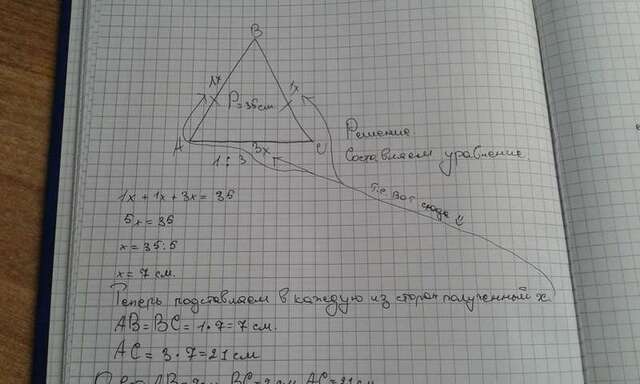 B
1x
1x
P=35см
A
3x
C
1 : 3
Решение
Составляем уравнение.
т.е вот сюда
1x + 1x + 3x = 35
5x = 35
x = 35:5
x = 7 см.
Теперь подставляем в каждую из сторон полученный x
AB = BC = 1 · 7 = 7 см.
AC = 3 · 7 = 21 см